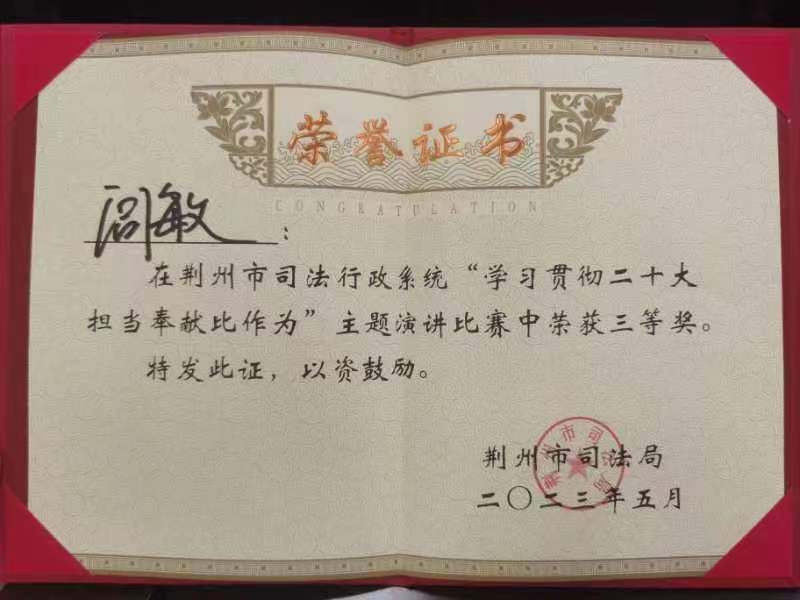 荣誉证书
CONGRATULATION
阎敏：
在荆州市司法行政系统“学习贯彻二十大
担当奉献比作为”主题演讲比赛中荣获三等奖。
特发此证，以资鼓励。
荆州市司法局
荆州市司法局
二〇二三年五月